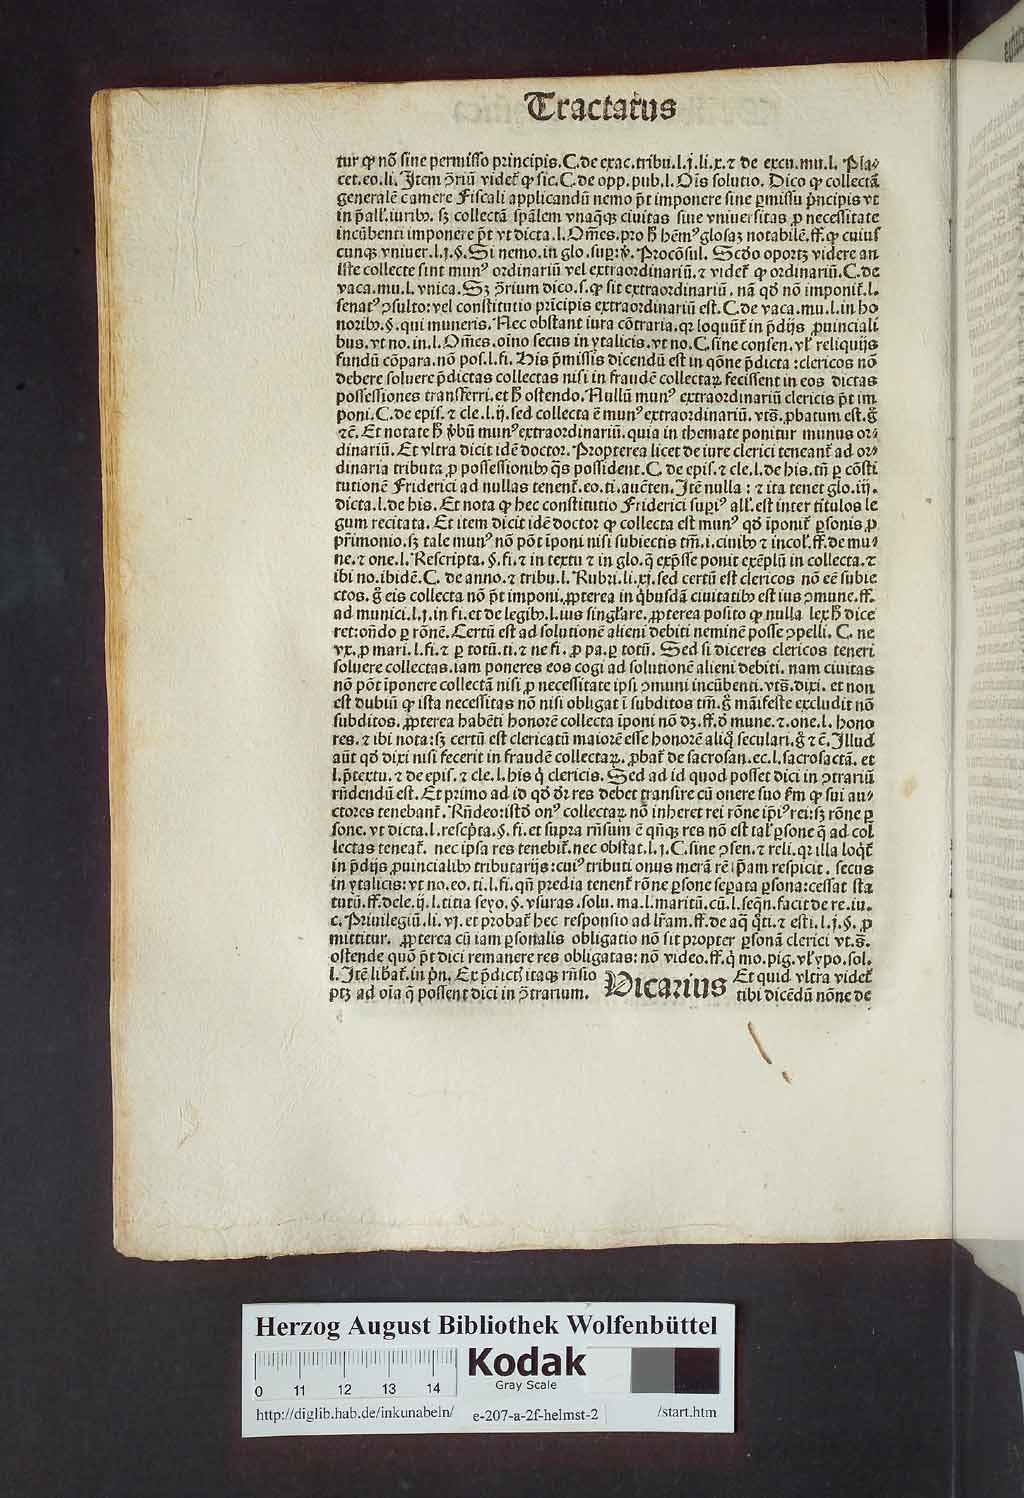 Tractatus
tur ꝙ nõ sine permisso principis. C. de exac. tribu. l. j. li. x. ⁊ de excu. mu. l. Pla-
cet. eo. li. Item ↄ̃riũ videt᷑ ꝙ sic. C. de opp. pub. l. Oĩs solutio. Dico ꝙ collectã
generalẽ camere Fiscali applicandũ nemo p̃t imponere sine ꝑmissu p̃ncipis vt
in p̃all'. iuribꝰ. sꝫ collectã spãlem vnaq̃qꝫ ciuitas siue vniuersitas ꝓ necessitate
incũbenti imponere p̃t vt dicta. l. Om̃es. pro h̃ hẽmꝰ glosaꝫ notabilẽ. ff. ꝙ cuius
cunqꝫ vniuer. l. j. §. Si nemo. in glo. suꝑ: v̾. Procõsul. Scdo oportꝫ videre an
iste collecte sint munꝰ ordinariũ vel extraordinariũ. ⁊ videt᷑ ꝙ ordinariũ. C. de
vaca. mu. l. vnica. Sꝫ ↄ̃rium dico. s. ꝙ sit extraordinariũ. nã qđ nõ imponit᷑. l.
senatꝰ ↄsulto: vel constitutio principis extraordinariũ est. C. de vaca. mu. l. in ho
noribꝰ. §. qui muneris. Nec obstant iura cõtraria. qꝛ loquũt᷑ in p̃dijs ꝓuinciali
bus. vt no. in. l. Om̃es. oĩno secus in ytalicis. vt no. C. sine consen. vl' reliquijs
fundũ cõpara. nõ pos. l. fi. His p̃missis dicendũ est in qõne p̃dicta: clericos nõ
debere soluere p̃dictas collectas nisi in fraudẽ collectaꝝ fecissent in eos dictas
possessiones transferri. et h̃ ostendo. Nullũ munꝰ extraordinariũ clericis p̃t im
poni. C. de epis. ⁊ cle. l. ij. sed collecta ẽ munꝰ extraordinariũ. vts̃. ꝓbatum est. g̃
⁊c̃. Et notate h̃ v̾bũ munꝰ extraordinariũ. quia in themate ponitur munus or-
dinariũ. Et vltra dicit idẽ doctor. Propterea licet de iure clerici teneant᷑ ad or-
dinaria tributa ꝓ possessionibꝰ q̃s possident. C. de epis. ⁊ cle. l. de his. tñ ꝑ cõsti
tutionẽ Friderici ad nullas tenent᷑. eo. ti. auẽten. Itẽ nulla: ⁊ ita tenet glo. iij.
dicta. l. de his. Et nota ꝙ hec constitutio Friderici suꝑiꝰ all'. est inter titulos le
gum recitata. Et item dicit idẽ doctor ꝙ collecta est munꝰ qđ ĩponit᷑ ꝑsonis ꝓ
p̃rimonio. sꝫ tale munꝰ nõ põt ĩponi nisi subiectis tm̃. i. ciuibꝰ ⁊ incol'. ff. de mu-
ne. ⁊ one. l. Rescripta. §. fi. ⁊ in textu ⁊ in glo. q̃ exp̃sse ponit exẽplũ in collecta. ⁊
ibi no. ibidẽ. C. de anno. ⁊ tribu. l. Rubri. li. xj. sed certũ est clericos nõ eẽ subie
ctos. g̃ eis collecta nõ p̃t imponi. ꝓpterea in q̃busdã ciuitatibꝰ est ius ↄmune. ff.
ad munici. l. j. in fi. et de legibꝰ. l. ius singl'are. ꝓpterea posito ꝙ nulla lex h̃ dice
ret: oñdo ꝑ rõnẽ. Certũ est ad solutionẽ alieni debiti neminẽ posse ↄpelli. C. ne
vx. ꝓ mari. l. fi. ⁊ ꝑ totũ. ti. ⁊ ne fi. ꝓ pa. ꝑ totũ. Sed si diceres clericos teneri
soluere collectas. iam poneres eos cogi ad solutionẽ alieni debiti. nam ciuitas
nõ põt ĩponere collectã nisi ꝓ necessitate ipsi ↄmuni incũbenti. vts̃. dixi. et non
est dubiũ ꝙ ista necessitas nõ nisi obligat ĩ subditos tm̃. g̃ mãifeste excludit nõ
subditos. ꝓpterea habẽti honorẽ collecta ĩponi nõ dꝫ. ff. đ mune. ⁊. one. l. hono
res. ⁊ ibi nota: sꝫ certũ est clericatũ maiorẽ esse honorẽ aliq̃ seculari. g̃ ⁊c̃. Illud
aũt qđ dixi nisi fecerit in fraudẽ collectaꝝ. ꝓbat᷑ de sacrosan. ec. l. sacrosactã. et
l. p̃textu. ⁊ de epis. ⁊ cle. l. his q̃ clericis. Sed ad id quod posset dici in ↄtrariũ
rñdendũ est. Et primo ad id qđ đr res debet transire cũ onere suo km̃ ꝙ sui au-
ctores tenebant᷑. Rñdeo: istđ onꝰ collectaꝝ nõ inheret rei rõne ip̃iꝰ rei: sꝫ rõne ꝑ
sone. vt dicta. l. resc̃pta. §. fi. et supra rñsum ẽ qñqꝫ res nõ est tal' ꝑsone q̃ ad col
lectas teneat᷑. nec ipsa res tenebit᷑. nec obstat. l. j. C. sine ↄsen. ⁊ reli. qꝛ illa loq̃t᷑
in p̃dijs ꝓuincialibꝰ tributarijs: cuiꝰ tributi onus merã rẽ ip̃am respicit. secus
in ytalicis: vt no. eo. ti. l. fi. qñ predia tenent᷑ rõne ꝑsone seꝑata ꝑsona: cessat sta
tutũ. ff. dele. ij. l. titia seyo. §. vsuras. solu. ma. l. maritũ. cũ. l. seqñ. facit de re. iu.
c. Priuilegiũ. li. vj. et probat᷑ hec responsio ad lr̃am. ff. de aq̃ q̃ti. ⁊ esti. l. j. §. ꝓ
mittitur. ꝓpterea cũ iam ꝑsonalis obligatio nõ sit propter ꝑsonã clerici vt. s̃.
ostende quõ p̃t dici remanere res obligatas: nõ video. ff. q̃ mo. pig. vl' ypo. sol.
l. Itẽ libat᷑. in p̃n. Ex p̃dict̃ itaqꝫ rñsio
ptꝫ ad oĩa q̃ possent dici in ↄ̃trarium. Vicarius Et quid vltra videt᷑
tibi dicẽdũ nõne de
Herzog August Bibliothek Wolfenbüttel
Kodak
Gray Scale
0 11 12 13 14
http://diglib.hab.de/inkunabeln/ e-207-a-2f-helmst-2 /start.htm